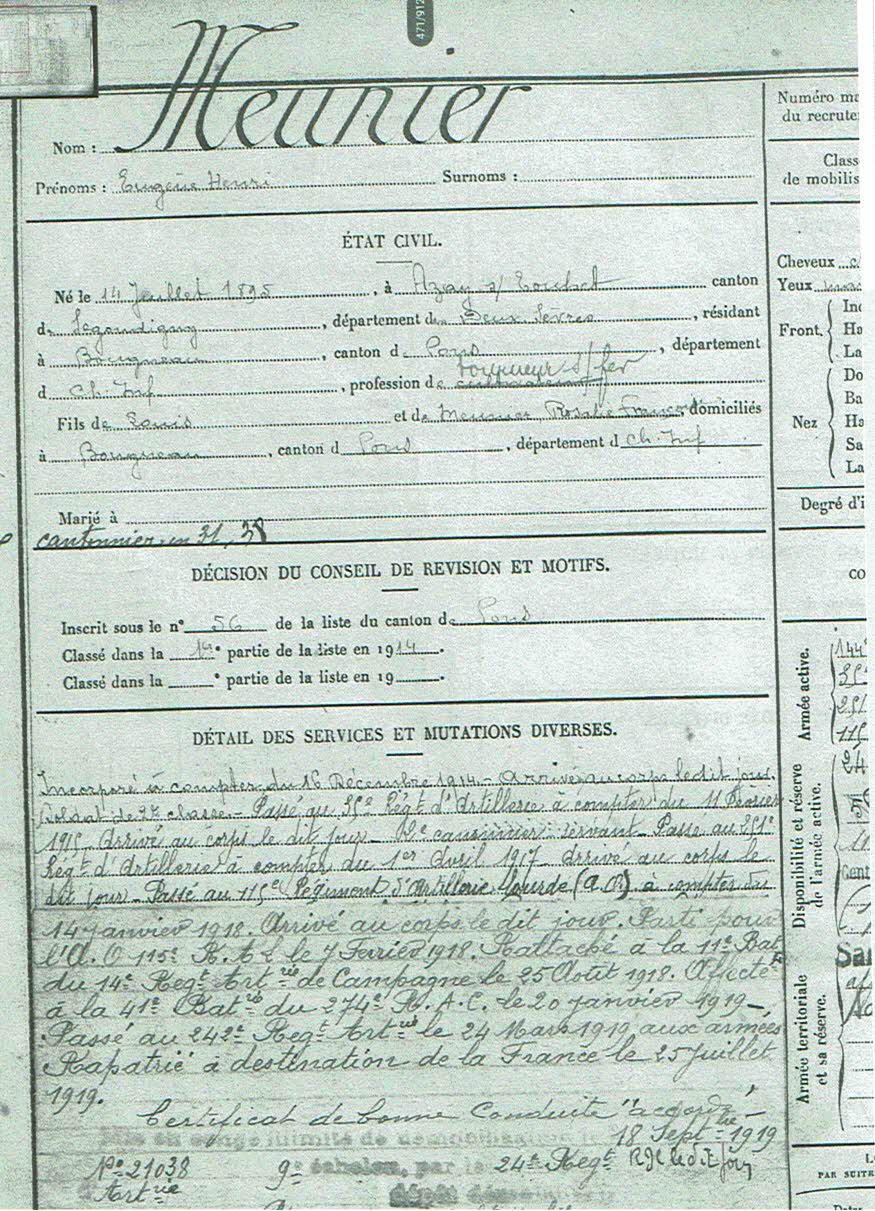 471/912
Meunier
Nom :
Prénoms : Eugène Henri Surnoms :
ÉTAT CIVIL.
Né le 14 Juillet 1895, à Azay s/ canton
de, département des Deux Sèvres, résidant
à Bougneau, canton de Pons, département
d Ch. Inf, profession de cultivateur s/ fer
Fils de Louis et de Meunier Rosalie domiciliés
à Bougneau, canton d Pons, département d Ch. Inf
Marié à
cantonnier en 31, 38
DÉCISION DU CONSEIL DE REVISION ET MOTIFS.
Inscrit sous le n° 56 de la liste du canton de Pons
Classé dans la 1re partie de la liste en 1914.
Classé dans la e partie de la liste en 19
DÉTAIL DES SERVICES ET MUTATIONS DIVERSES.
Incorporé à compter du 16 Décembre 1914. - Arrivé au corps le dit jour.
Soldat de 2e classe. - Passé au Régt d'Artillerie à compter du 11 Février
1915 - Arrivé au corps le dit jour - 2e canonnier servant - Passé au 251e
Régt d'Artillerie à compter du 1er Avril 1917 - Arrivé au corps le
dit jour - Passé au 115e Régiment d'Artillerie lourde (A.O.) à compter du
14 janvier 1918. Arrivé au corps le dit jour. Parti pour
l'A.O 115e R.A.L le 7 Fevrier 1918. Rattaché à la 11e Batie
du 14e Regt Artie de Campagne le 25 Août 1918. Affecté
à la 41e Batie du 274e R.A.C. le 20 janvier 1919 -
Passé au 242e Regt Artie le 24 Mars 1919 aux armées
Rapatrié à destination de la France le 25 Juillet
1919.
Certificat de bonne Conduite "accordé"
Mis en congé illimité de démobilisation le 18 Septbre 1919
No 21038 9e échelon, par le 24e Regt le dit jour
Artie dépôt démobilisateur
Numéro ma
du recrute
Class
de mobilis
Cheveux
Yeux
Front.
Inc
Ha
La
Nez
Do
Ba
Ha
Sa
La
Degré d'i
CO
Armée active.
144e
251
115
Disponibilité et réserve
de l'armée active.
24
Armée territoriale
et sa réserve.
PAR SUITE